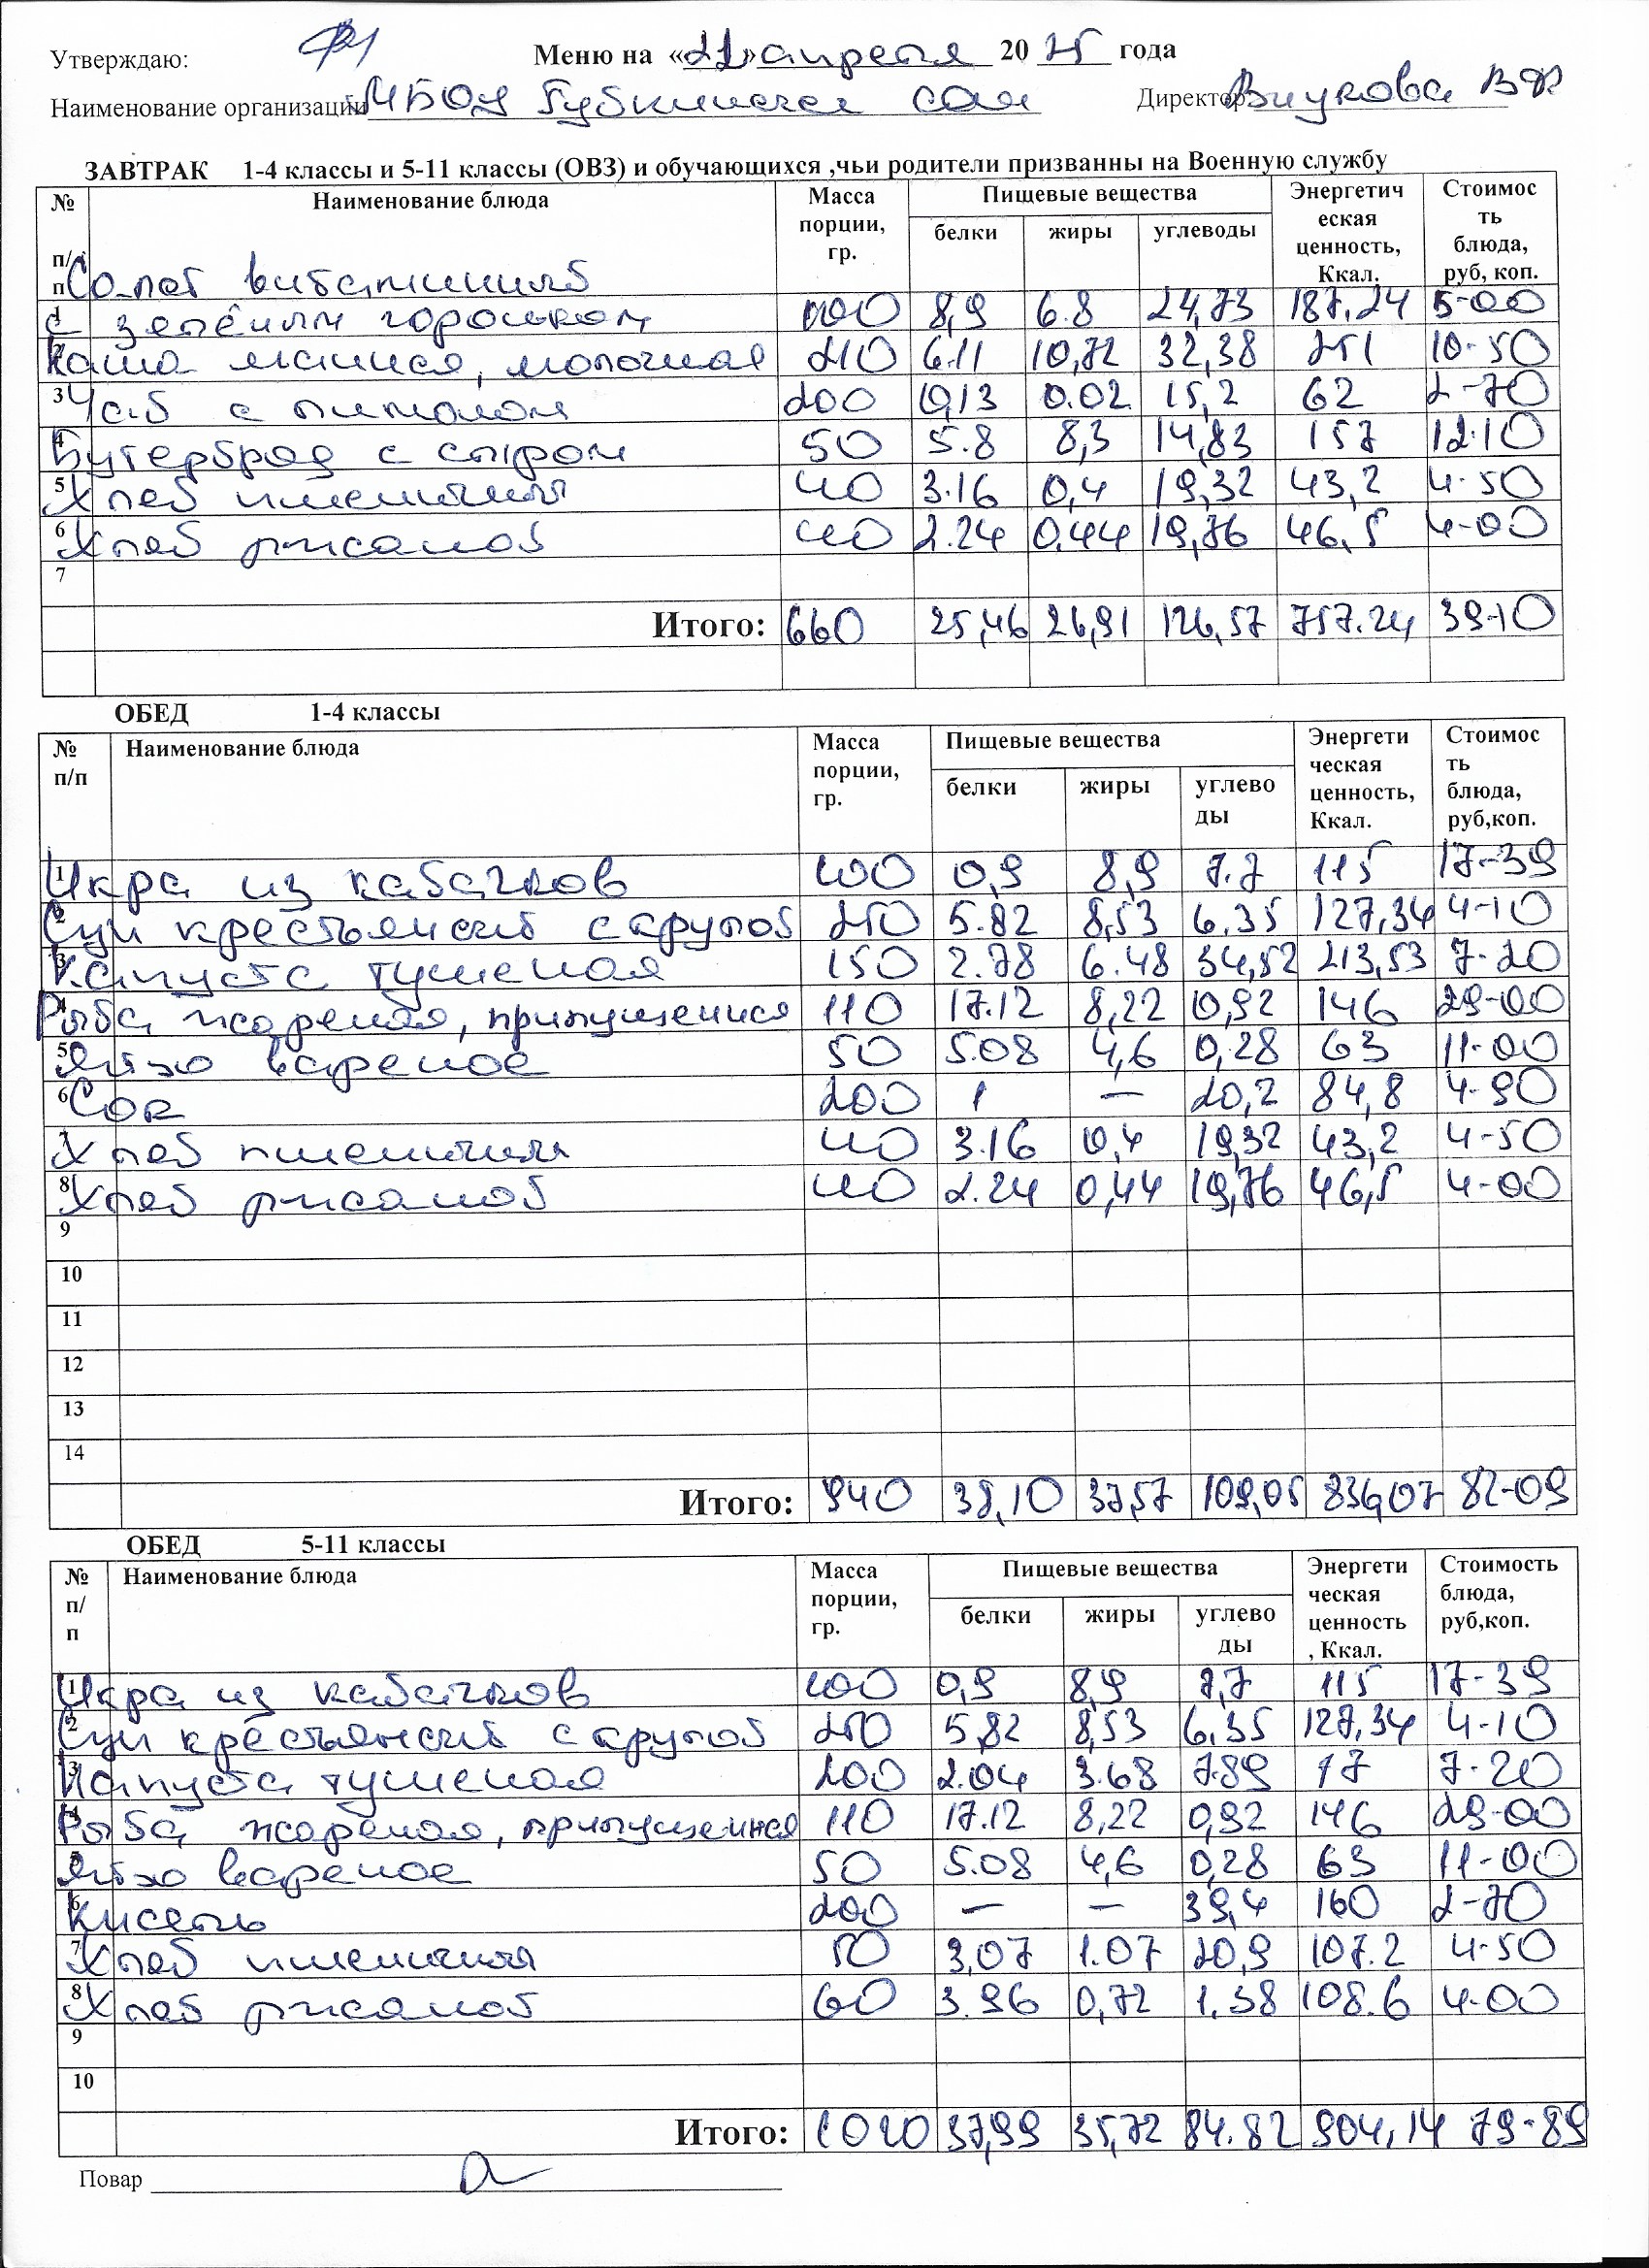 Утверждаю: Меню на «22» апреля 2025 года
Наименование организации МБОУ Губкинская сош Директор Внукова В.Ф
ЗАВТРАК 1-4 классы и 5-11 классы (ОВЗ) и обучающихся ,чьи родители призванны на Военную службу
№ п/п Наименование блюда Масса порции, гр. Пищевые вещества Энергетическая ценность, Ккал. Стоимость блюда, руб, коп.
белки жиры углеводы
Салат витаминный
1 с зелёным горошком 100 8,9 6.8 24,73 187,24 5-00
2 Каша ячневая, молочная 210 6.11 10,72 32,38 251 10-50
3 Чай с лимоном 200 0,13 0.02 15,2 62 2-70
4 Бутерброд с сыром 50 5.8 8,3 14,83 157 12-10
5 Хлеб пшеничный 40 3.16 0,4 19,32 43,2 4-50
6 Хлеб ржаной 40 2.24 0,44 19,76 46,5 4-00
7
Итого: 660 25,46 26,91 126,57 757.24 39-10
ОБЕД 1-4 классы
№ п/п Наименование блюда Масса порции, гр. Пищевые вещества Энергетическая ценность, Ккал. Стоимость блюда, руб,коп.
белки жиры углеводы
1 Икра из кабачков 100 0,9 8,9 7.7 115 17-39
2 Суп крестьянский с крупой 250 5.82 8,53 6,35 127,34 4-10
3 Капуста тушеная 150 2.78 6.48 34,52 213,53 7-20
4 Рыба жареная, припущенная 110 17.12 8,22 0,92 146 29-00
5 Яйцо вареное 50 5.08 4,6 0,28 63 11-00
6 Сок 200 1 — 20,2 84,8 4-90
7 Хлеб пшеничный 40 3.16 0,4 19,32 43,2 4-50
8 Хлеб ржаной 40 2.24 0,44 19,76 46,5 4-00
9
10
11
12
13
14
Итого: 940 38,10 37,57 109,05 836,07 82-09
ОБЕД 5-11 классы
№ п/п Наименование блюда Масса порции, гр. Пищевые вещества Энергетическая ценность, Ккал. Стоимость блюда, руб,коп.
белки жиры углеводы
1 Икра из кабачков 100 0,9 8,9 7,7 115 17-39
2 Суп крестьянский с крупой 250 5,82 8,53 6,35 127,34 4-10
3 Капуста тушеная 200 2.04 3.68 7.89 77 7-20
4 Рыба жареная, припущенная 110 17.12 8,22 0,92 146 29-00
5 Яйцо вареное 50 5.08 4,6 0,28 63 11-00
6 Кисель 200 — — 39,4 160 2-70
7 Хлеб пшеничный 50 3,07 1.07 20,9 107.2 4-50
8 Хлеб ржаной 60 3.96 0,72 1,38 108.6 4-00
9
10
Итого: 1020 37,99 35,72 84.82 904,14 79-89
Повар